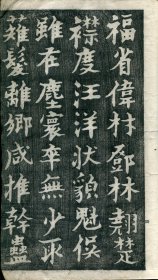 福省偉林鄧林翹楚
襟度汪洋狀貌魁俁
雖在塵寰卒無少取
薙髮離鄉咸推幹蠱